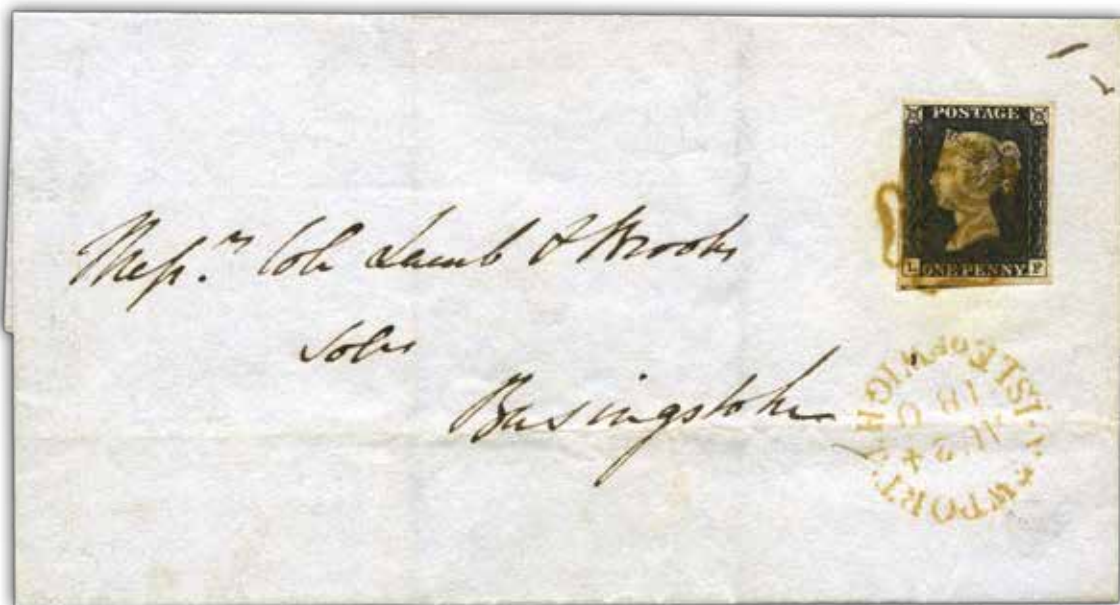 POSTAGE
L ONE PENNY F
Messrs. Cole Lamb & Brooks
Solrs
Basingstoke
NEWPORT ISLE OF WIGHT
AU 24
18 0